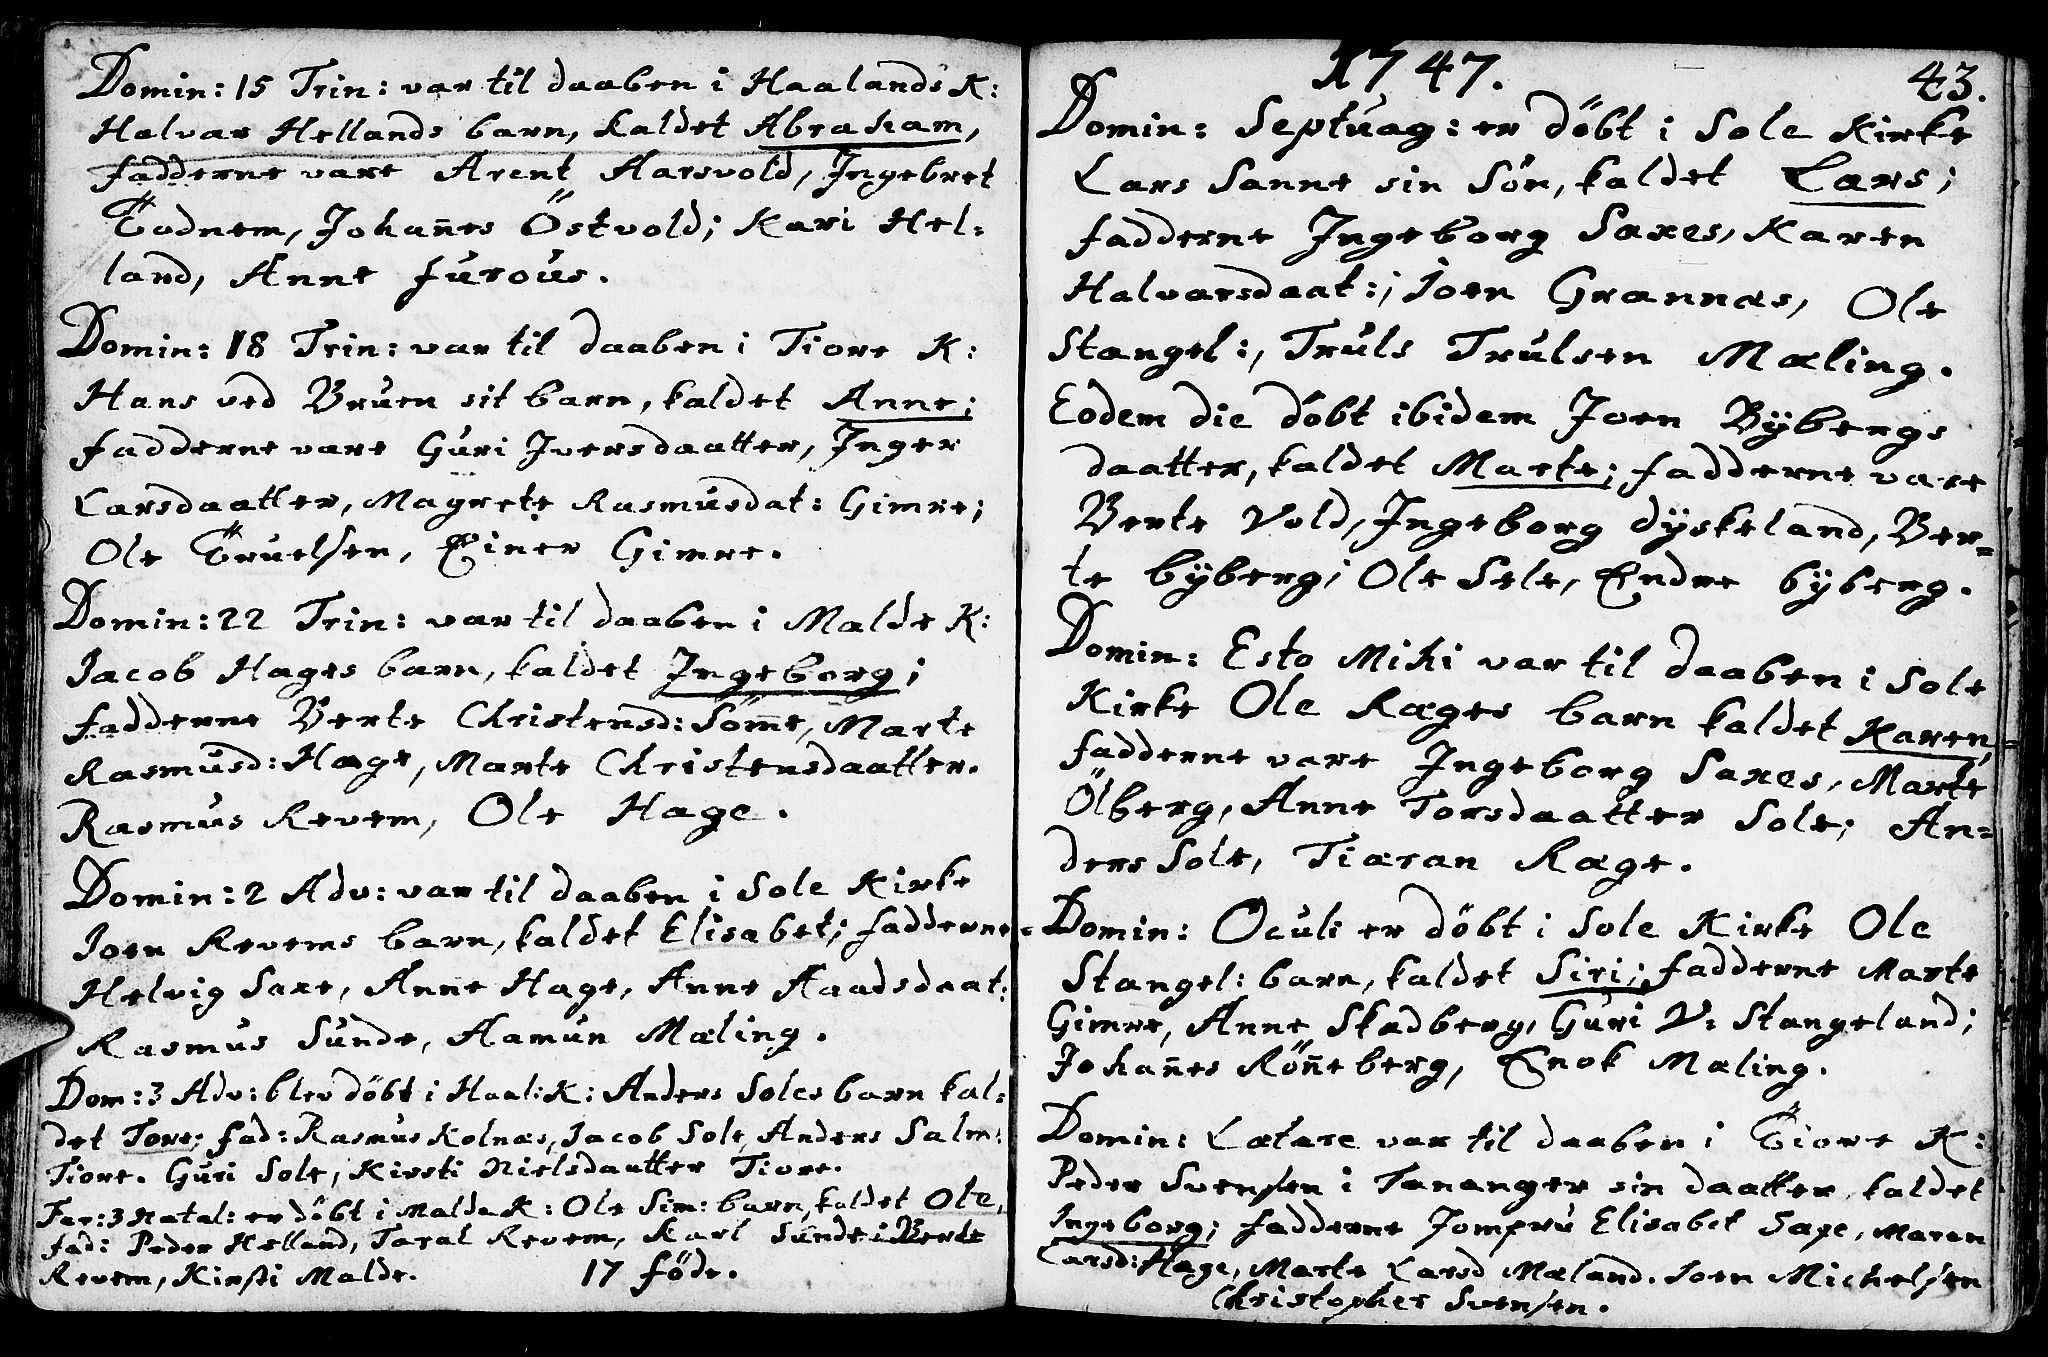 Domin: 15 Trin: var til daaben i Haalands K:
Halvar Hellands barn, kaldet Abraham,
fadderne vare Arent Aarsvold, Ingebret
Todnem, Johan̄es Östvold; Kari Hel:
land, Anne furous.
Domin: 18 Trin: var til daaben i Tiore K:
Hans ved Bruen sit barn, kaldet Anne;
fadderne vare Guri Iversdaatter, Inger
Larsdaatter, Magrete Rasmusdat: Gimre;
Ole Truelsen, Einer Gimre.
Domin: 22 Trin: var til daaben i Malde K:
Jacob Hages barn, kaldet Ingeborg;
fadderne Berte Christensd: Söm̄e, Marte
Rasmusd: Hage, Marte Christensdaatter.
Rasmus Revem, Ole Hage.
Domin: 2 Adv: var til daaben i Sole Kirke
Joen Revems barn, kaldet Elisabet; fadderne
Helvig Saxe, Anne Hage, Anne Aadsdaat:
Rasmus Sunde, Aamun Mæling.
Dom: 3 Adv: blev döbt i Haal: K: Anders Soles barn kal:
det Tore; fad: Rasmus Kolnæs, Jacob Sole, Anders Salm:
Tiore. Guri Sole, Kirsti Nielsdautter Tiore.
Fer: 3 Natal: er döbt i Malde K: Ole Sim: barn, kaldet Ole,
fad: Peder Helland, Taral Revem, Karl Sunde; Berte
Revem, Kirsti Malde. 17 föde.
1747. 43.
Domin: Septuag: er döbt i Sole Kirke
Lars Sanne sin Sön, kaldet Lars;
fadderne Ingeborg Saxes, Karen
Halvarsdaat:; Joen Grannæs, Ole
Stangel:, Truls Trulsen Mæling.
Eodem die döbt ibidem Joen Bybergs
daatter, kaldet Marte; fadderne vare
Berte Vold, Ingeborg dyskeland, Ber=
te byberg; Ole Sele, Endre byberg.
Domin: Esto Mihi var til daaben i Sole
Kirke Ole Ræges barn kaldet Karen,
fadderne vare Ingeborg Saxes, Marte
Ölberg, Anne Torsdaatter Sole; An=
ders Sole, Tiæran Ræge.
Domin: Oculi er döbt i Sole Kirke Ole
Stangel: barn, kaldet Siri; fadderne Marte
Gimre, Anne Skadberg, Guri V: Stangeland;
Johan̄es Rön̄eberg, Enok Mæling.
Domin: Lætare var til daaben i Tiore K:
Peder Svensen i Tananger sin daatter, kaldet
Ingeborg; fadderne Jomfru Elisabet Saxe, Maren
Larsd: Hage, Marte Larsd Mæland. Joen Michelsen
Christopher Svensen.